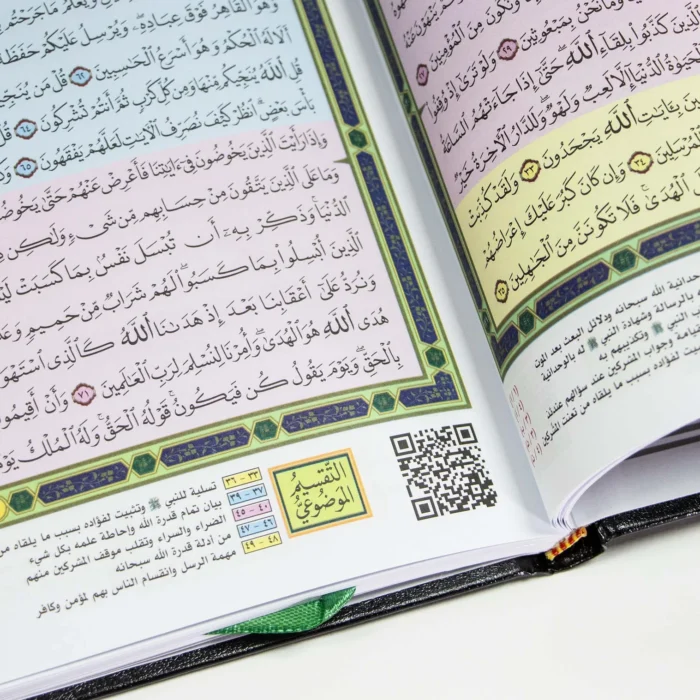 وَنَكُونَ مِنَ الْمُؤْمِنِينَ ٢٧
وَمَا نَحْنُ بِمَبْعُوثِينَ ٢٩ وَلَوْ تَرَىٰ إِذْ وُقِفُوا
الَّذِينَ كَذَّبُوا بِلِقَاءِ اللَّهِ حَتَّىٰ إِذَا جَاءَتْهُمُ السَّاعَةُ
الْحَيَوٰةُ الدُّنْيَا إِلَّا لَعِبٌ وَلَهْوٌ وَلَلدَّارُ الْآخِرَةُ خَيْرٌ
بِـَٔايَٰتِ اللَّهِ يَجْحَدُونَ ٣٣ وَلَقَدْ كُذِّبَتْ
الْمُرْسَلِينَ ٣٤ وَإِن كَانَ كَبُرَ عَلَيْكَ إِعْرَاضُهُمْ
الْهُدَىٰ فَلَا تَكُونَنَّ مِنَ الْجَٰهِلِينَ ٣٥
الله سبحانه ودلائل البعث بعد الموت
الرسالة وشهادة النبي ﷺ له بالوحدانية
وجواب المشركين عند سؤالهم عندئذ
لفؤاده بسبب ما يلقاه من تعنت المشركين
وَهُوَ الْقَاهِرُ فَوْقَ عِبَادِهِ وَيُرْسِلُ عَلَيْكُمْ حَفَظَةً
أَلَا لَهُ الْحُكْمُ وَهُوَ أَسْرَعُ الْحَٰسِبِينَ ٦٢ قُلْ مَن يُنَجِّيكُم
قُلِ اللَّهُ يُنَجِّيكُم مِّنْهَا وَمِن كُلِّ كَرْبٍ ثُمَّ أَنتُمْ تُشْرِكُونَ ٦٤ قُلْ
بَأْسَ بَعْضٍ انظُرْ كَيْفَ نُصَرِّفُ الْآيَٰتِ لَعَلَّهُمْ يَفْقَهُونَ ٦٥
وَإِذَا رَأَيْتَ الَّذِينَ يَخُوضُونَ فِي ءَايَٰتِنَا فَأَعْرِضْ عَنْهُمْ حَتَّىٰ يَخُوضُوا
وَمَا عَلَى الَّذِينَ يَتَّقُونَ مِنْ حِسَابِهِم مِّن شَيْءٍ وَلَٰكِن
الدُّنْيَا وَذَكِّرْ بِهِ أَن تُبْسَلَ نَفْسٌ بِمَا كَسَبَتْ
الَّذِينَ أُبْسِلُوا بِمَا كَسَبُوا لَهُمْ شَرَابٌ مِّنْ حَمِيمٍ
وَنُرَدُّ عَلَىٰ أَعْقَابِنَا بَعْدَ إِذْ هَدَىٰنَا اللَّهُ كَالَّذِي اسْتَهْوَتْهُ
هُدَى اللَّهِ هُوَ الْهُدَىٰ وَأُمِرْنَا لِنُسْلِمَ لِرَبِّ الْعَٰلَمِينَ ٧١ وَأَنْ أَقِيمُوا
بِالْحَقِّ وَيَوْمَ يَقُولُ كُن فَيَكُونُ قَوْلُهُ الْحَقُّ وَلَهُ الْمُلْكُ يَوْمَ
التقسيم
الموضوعي
٣٣ - ٣٦ تسلية للنبي ﷺ وتثبيت لفؤاده بسبب ما يلقاه من
٣٧ - ٣٩ بيان تمام قدرة الله وإحاطة علمه بكل شيء
٤٠ - ٤٥ الضراء والسراء وتقلب موقف المشركين منهم
٤٦ - ٤٧ من أدلة قدرة الله سبحانه
٤٨ - ٤٩ مهمة الرسل وانقسام الناس بهم لمؤمن وكافر